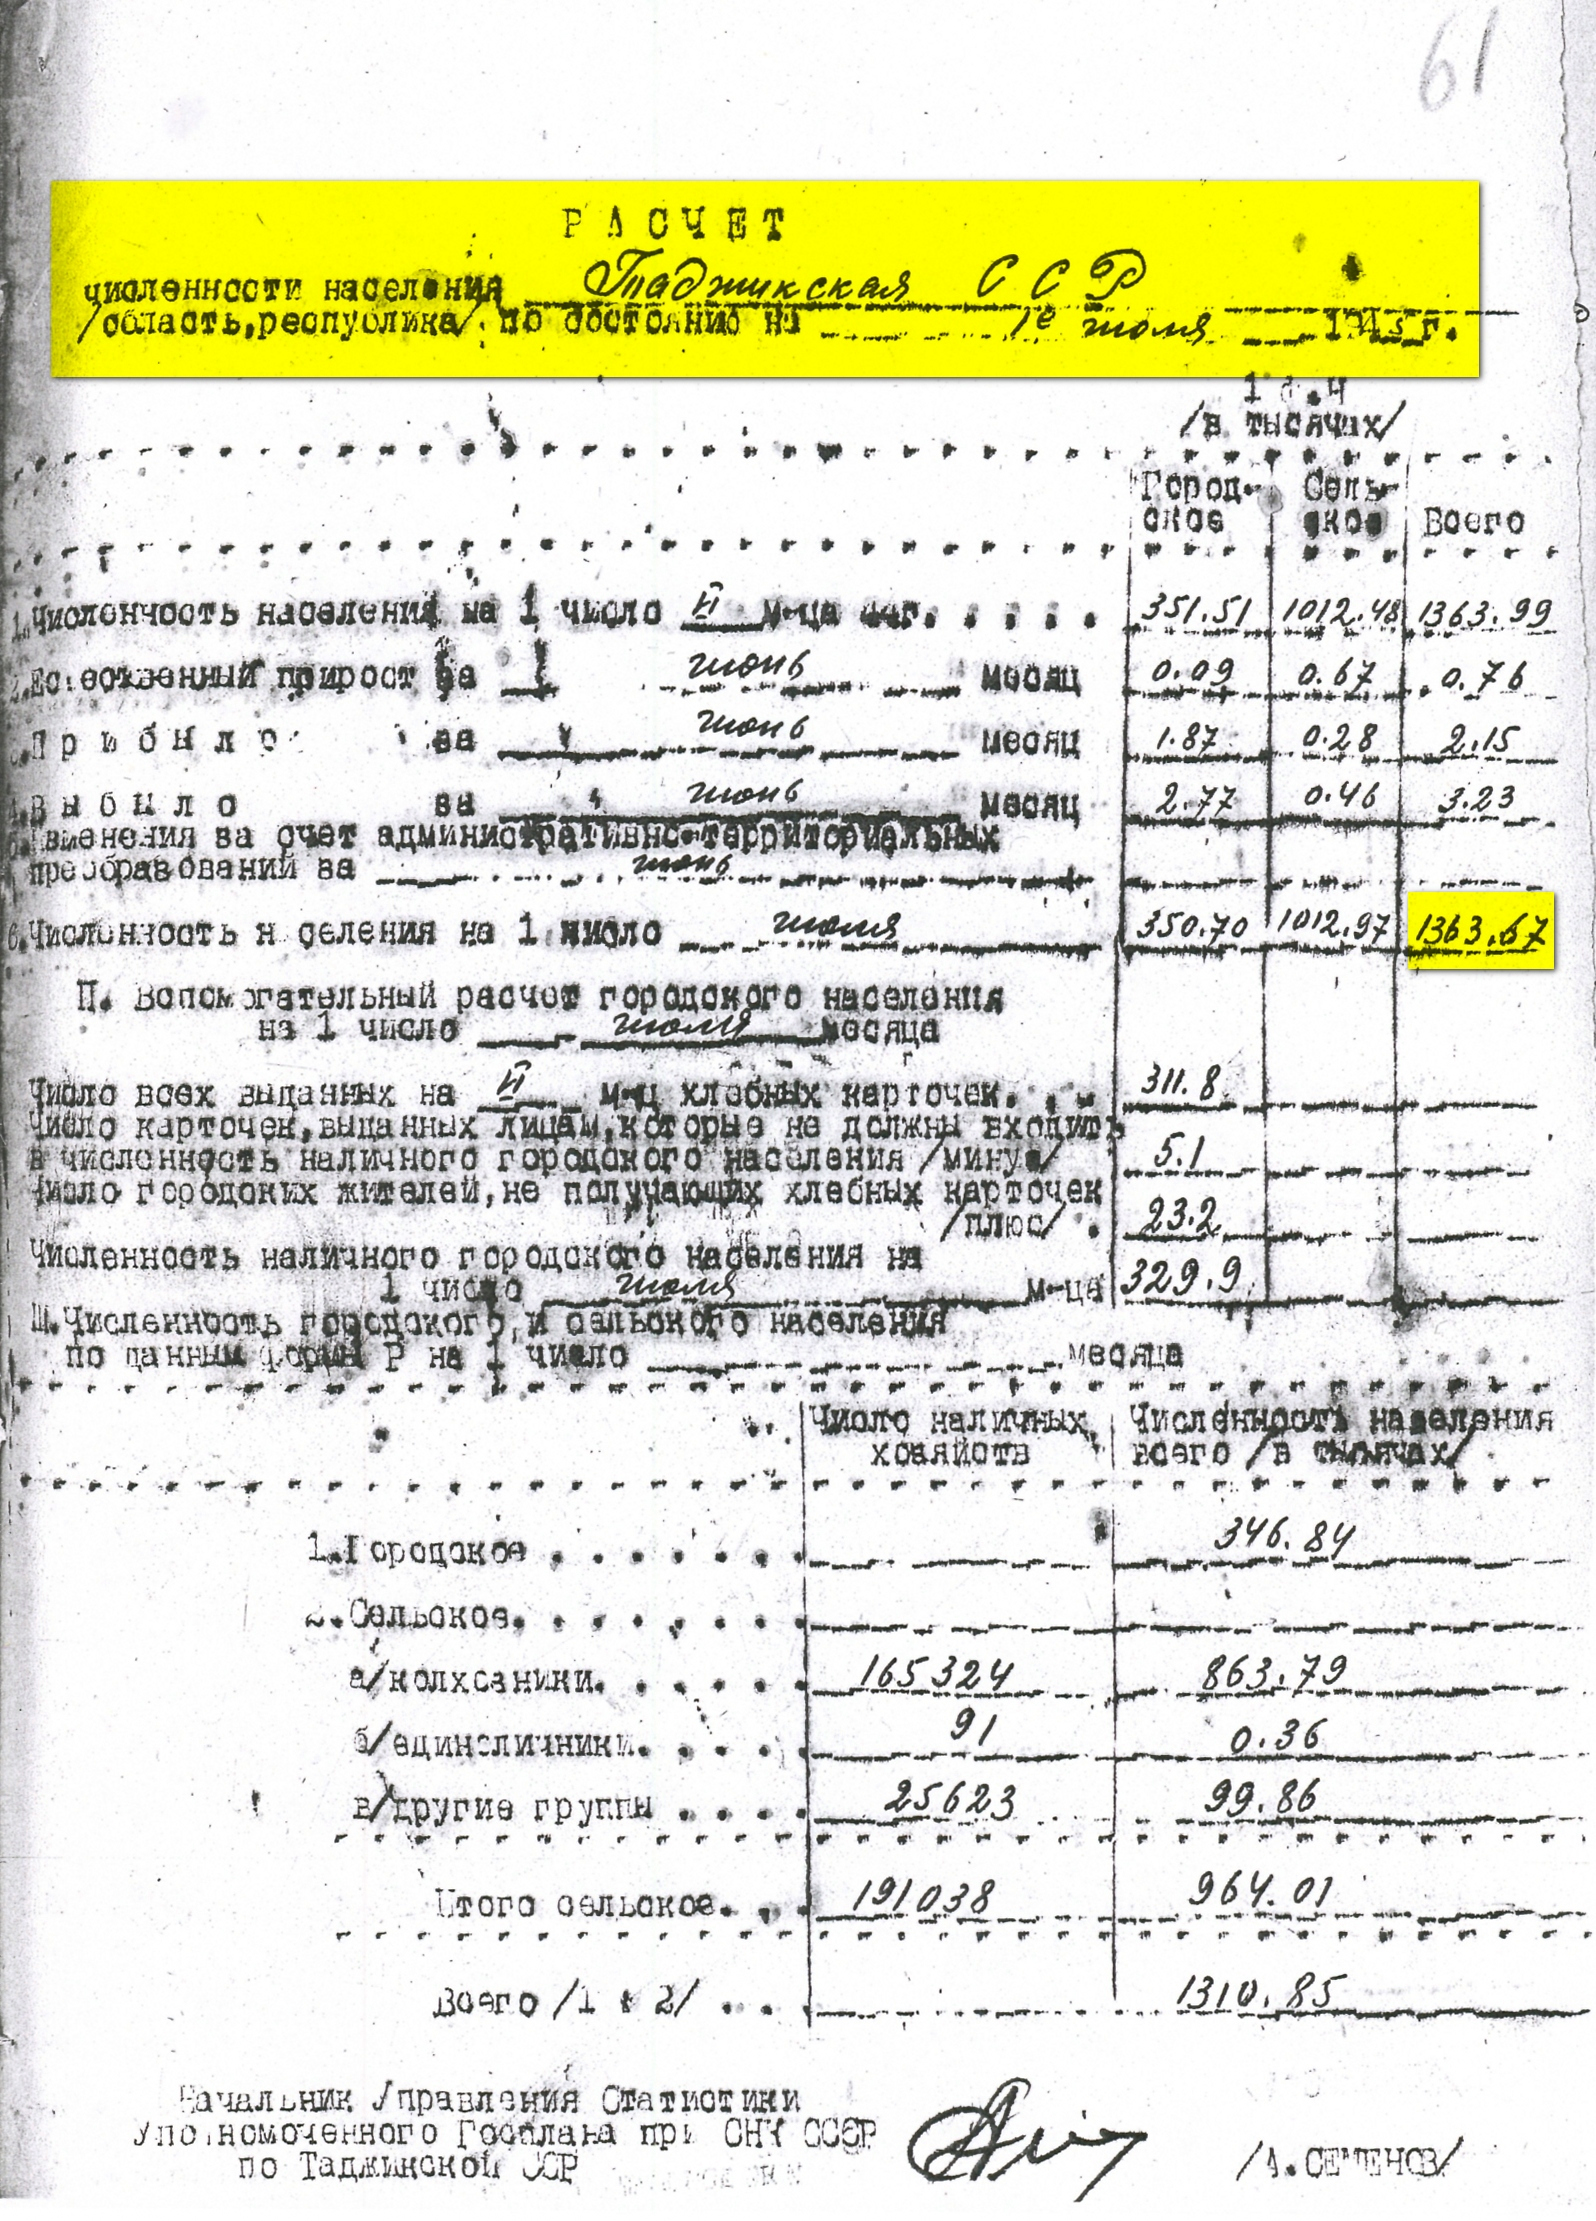 61
РАСЧЕТ
численности населения Таджикская ССР
/область, республика/ по состоянию на 1е июля 1943 г.
/в тысячах/
Город- Сель-
ское ское Всего
1. Численность населения на 1 число VI м-ца г. . . . . . 351.51 1012.48 1363.99
2. Естественный прирост за июнь месяц 0.09 0.67 0.76
3. Прибыло за июнь месяц 1.87 0.28 2.15
4. Выбыло за июнь месяц 2.77 0.46 3.23
5. Изменения за счет административно-территориальных
преобразований за июнь
6. Численность населения на 1 число июля 350.70 1012.97 1363.67
П. Вспомогательный расчет городского населения
на 1 число июля месяца
Число всех выданных на VI м-ц хлебных карточек. . . 311.8
Число карточек, выданных лицам, которые не должны входить
в численность наличного городского населения /минус/ 5.1
Число городских жителей, не получающих хлебных карточек
/плюс/ . 23.2
Численность наличного городского населения на
1 число июля м-ца 329.9
Ш. Численность городского и сельского населения
по данным формы Р на 1 число месяца
Число наличных Численность населения
хозяйств всего /в тысячах/
1. Городское . . . . . . . 346.84
2. Сельское. . . . . . . .
а/ колхозники. . . . . . 165324 863.79
б/ единоличники. . . . . 91 0.36
в/ другие группы . . . . 25623 99.86
Итого сельское. . . 191038 964.01
Всего /1 + 2/ . . . 1310.85
Начальник Управления Статистики
Уполномоченного Госплана при СНК СССР
по Таджикской ССР /А. СЕМЕНОВ/